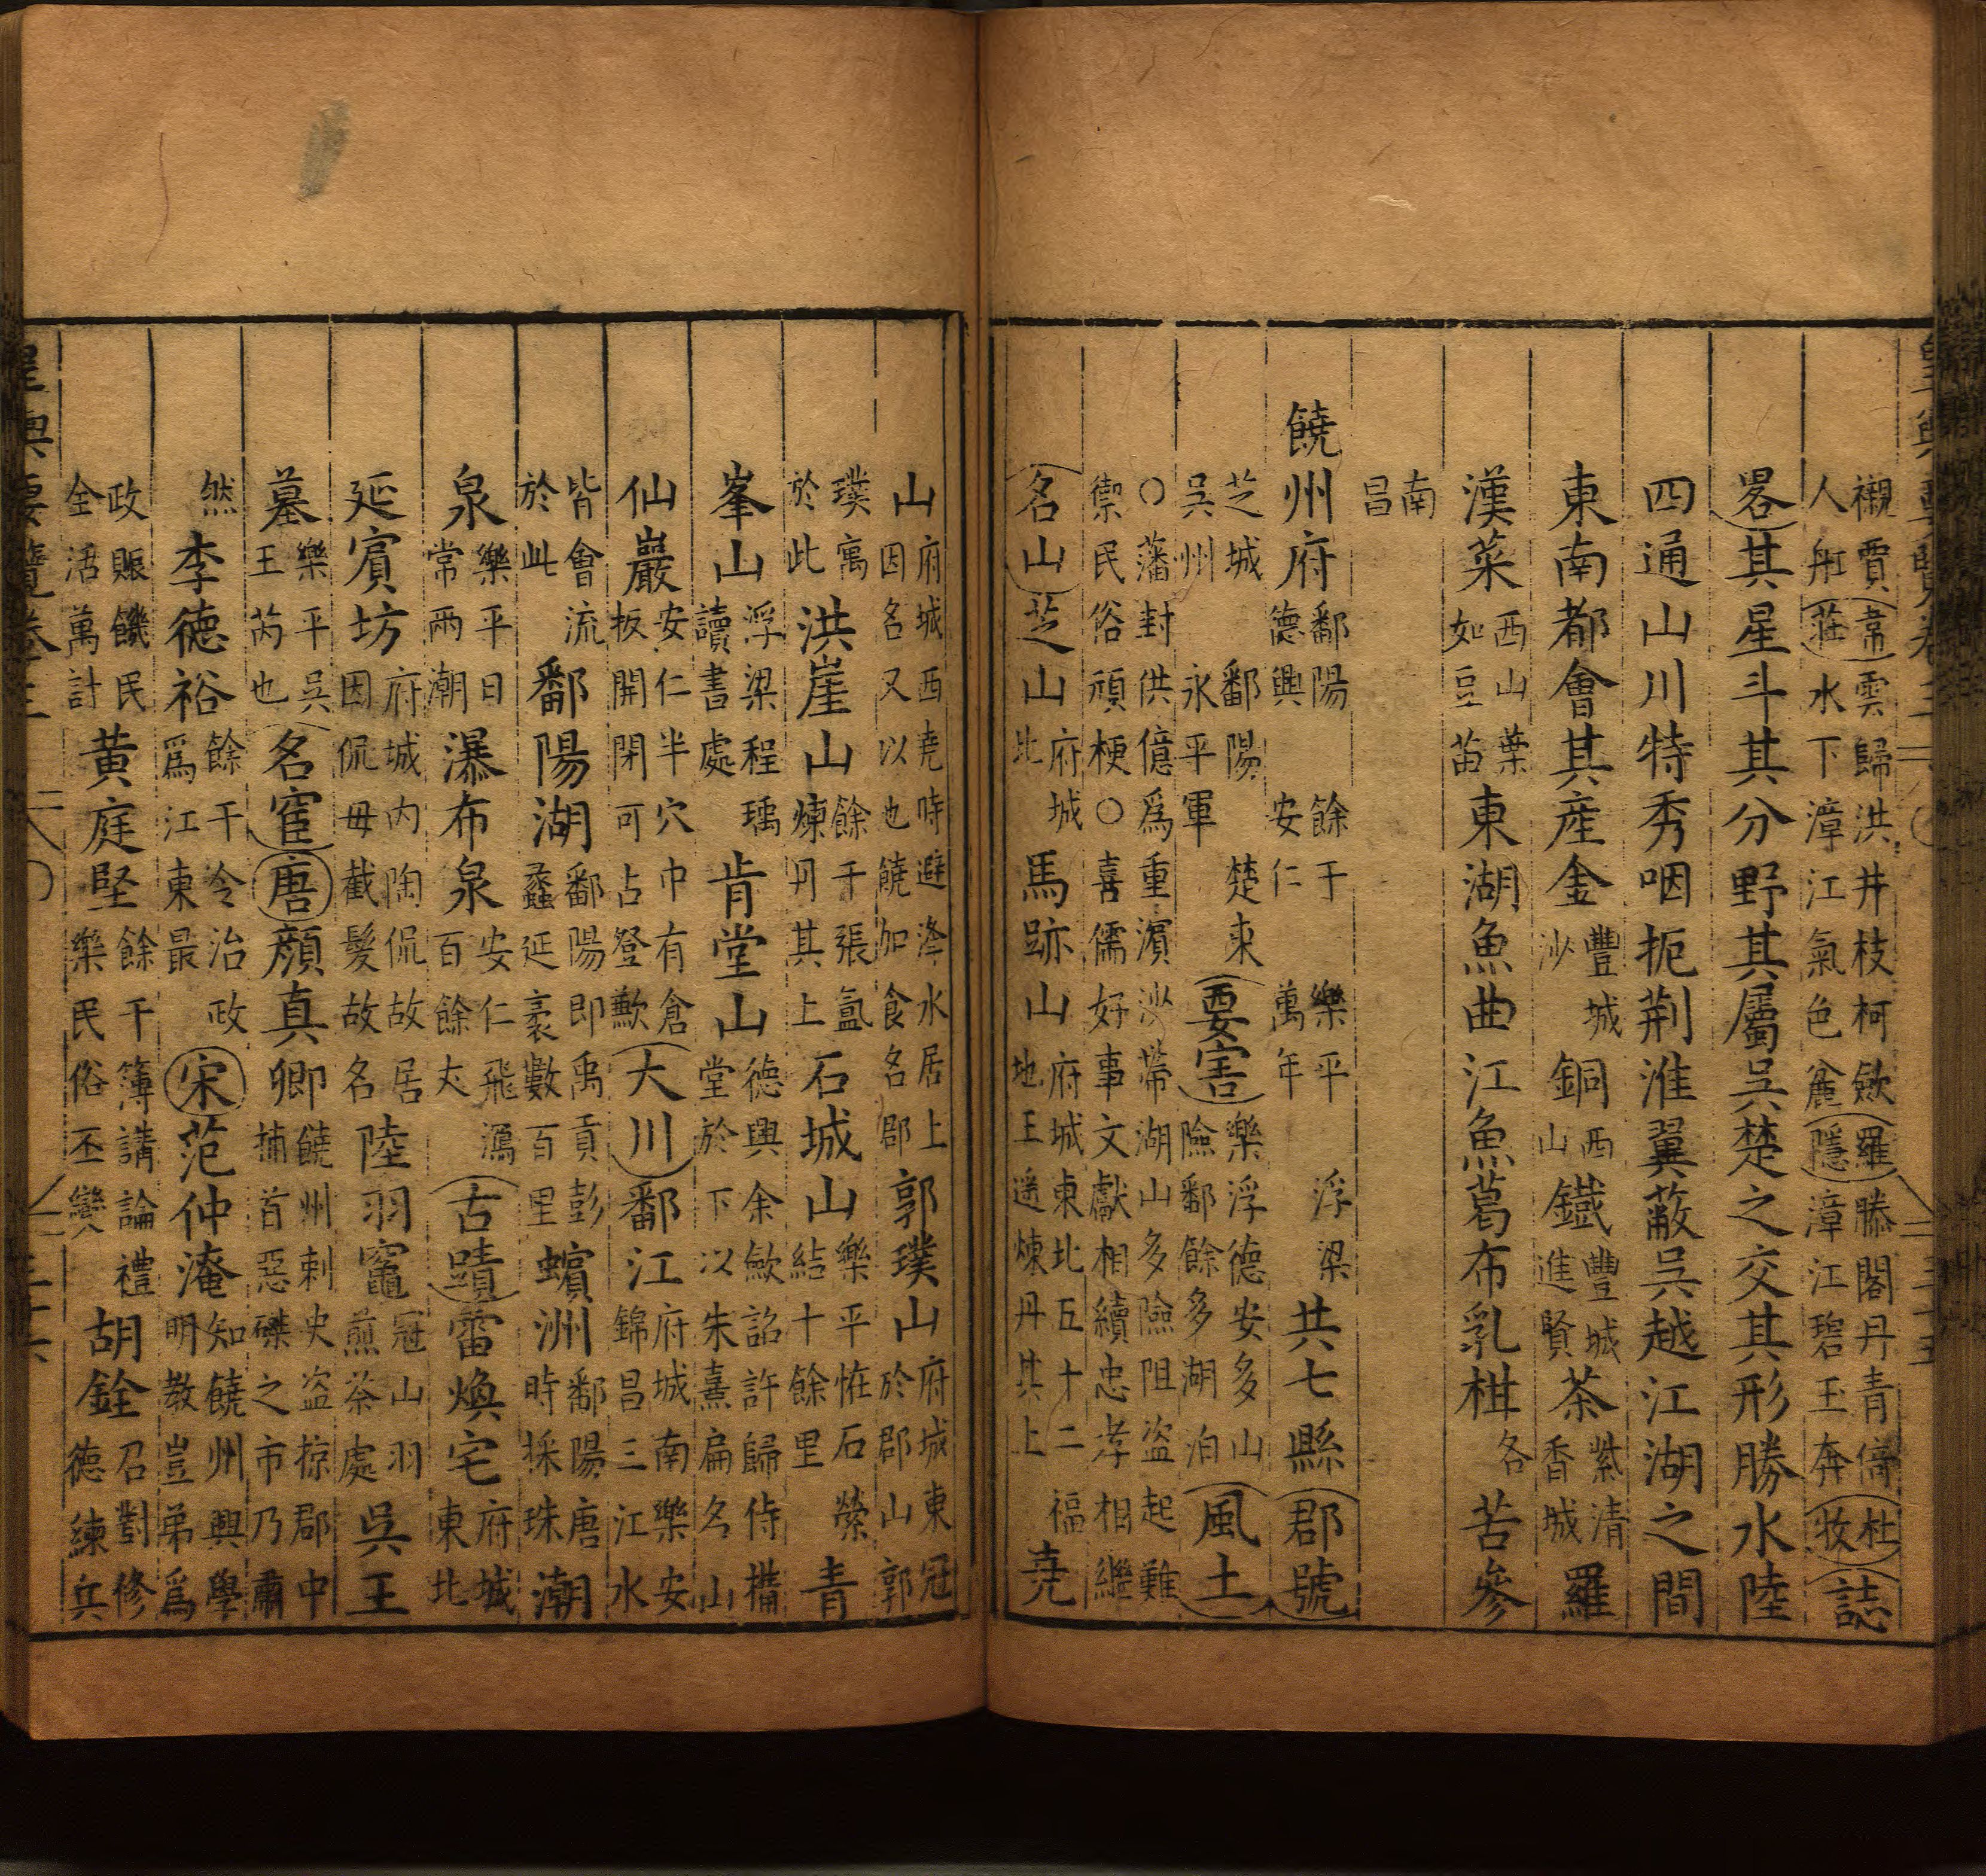 襯賈韋雲歸洪井枝柯斂羅滕閣丹青倚杜
人舡莊水下漳江氣色麄隱漳江碧玉奔牧誌
畧其星斗其分野其屬吳楚之交其形勝水陸
四通山川特秀咽扼荆淮翼蔽吳越江湖之間
東南都會其産金豐城沙銅西山鐵豐城進賢茶紫清香城羅
漢菜西山葉如豆苗東湖魚曲江魚葛布乳柑各苦參
南昌
饒州府鄱陽德興餘干安仁樂平萬年浮梁共七縣郡號
芝城吳州鄱陽永平軍楚東要害樂浮德安多山險鄱餘多湖泊風土
○藩封供億爲重濵沙帶湖山多險阻盜起難
禦民俗頑梗○喜儒好事文獻相續忠孝相繼
名山芝山府城北馬跡山府城東北五十二福地王遥煉丹其上堯
山府城西堯時避洚水居上因名又以也饒加食名郡郭璞山府城東冠於郡山郭
璞寓於此洪崖山餘干張氳煉丹其上石城山樂平恠石縈結十餘里青
峯山浮梁程瑀讀書處肯堂山德興余歛詔許歸侍搆堂於下以朱熹扁名山
仙巖安仁半穴巾有倉板開閉可占登歉大川鄱江府城南樂安錦昌三江水
皆會流於此鄱陽湖鄱陽即禹貢彭蠡延袤數百里蠙洲鄱陽唐時採珠潮
泉樂平日常兩潮瀑布泉安仁飛瀉百餘丈古蹟雷煥宅府城東北
延賓坊府城内陶侃故居因侃母截髮故名陸羽竈冠山羽煎茶處吳王
墓樂平吳王芮也名宦唐顔真卿饒州刺史盜掠郡中捕首惡磔之市乃肅
然李德裕餘干令治政爲江東最宋范仲淹知饒州興學明教豈弟爲
政賑饑民全活萬計黄庭堅餘干簿講論禮樂民俗丕變胡銓召對修德練兵